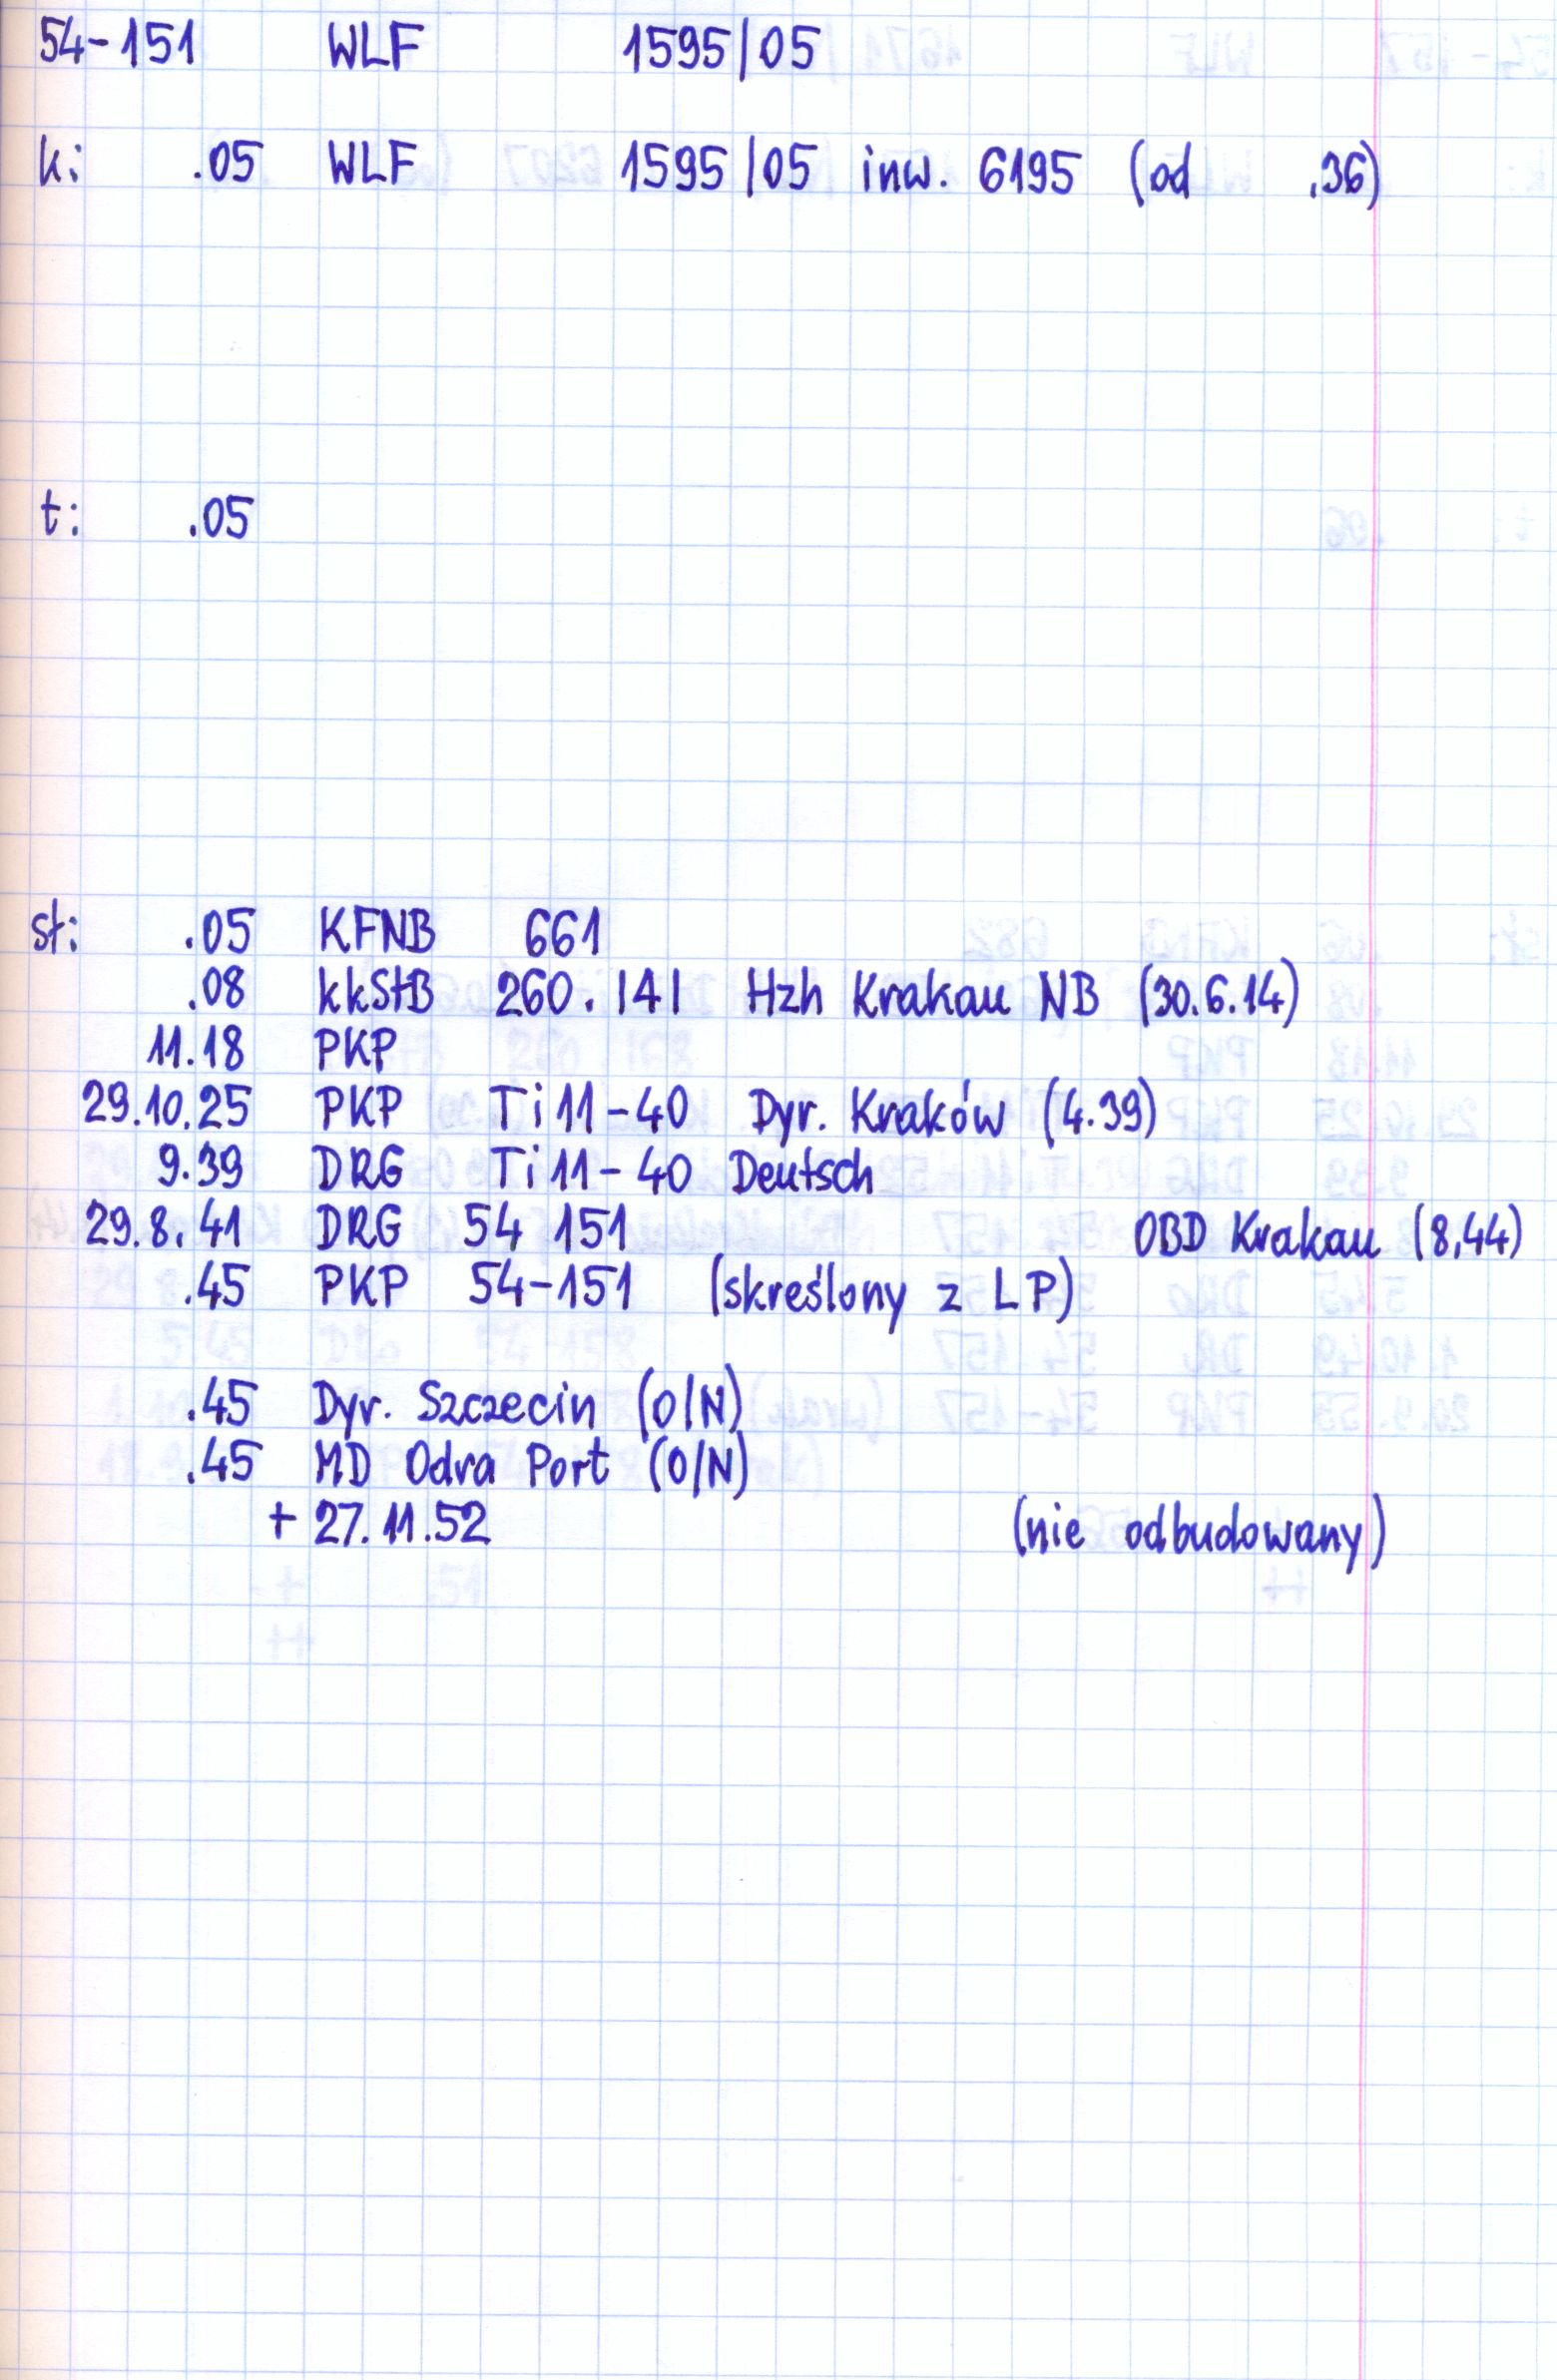 54-151 WLF 1595/05
k: .05 WLF 1595/05 inw. 6195 (od .36)
t: .05
st: .05 KFNB 661
.08 kkStB 260.141 Hzh Krakau NB (30.6.14)
11.18 PKP
29.10.25 PKP Ti11-40 Dyr. Kraków (4.39)
9.39 DRG Ti11-40 Deutsch
29.8.41 DRG 54 151 OBD Krakau (8,44)
.45 PKP 54-151 (skreślony z LP)
.45 Dyr. Szczecin (O/N)
.45 MD Odra Port (O/N)
+ 27.11.52 (nie odbudowany)